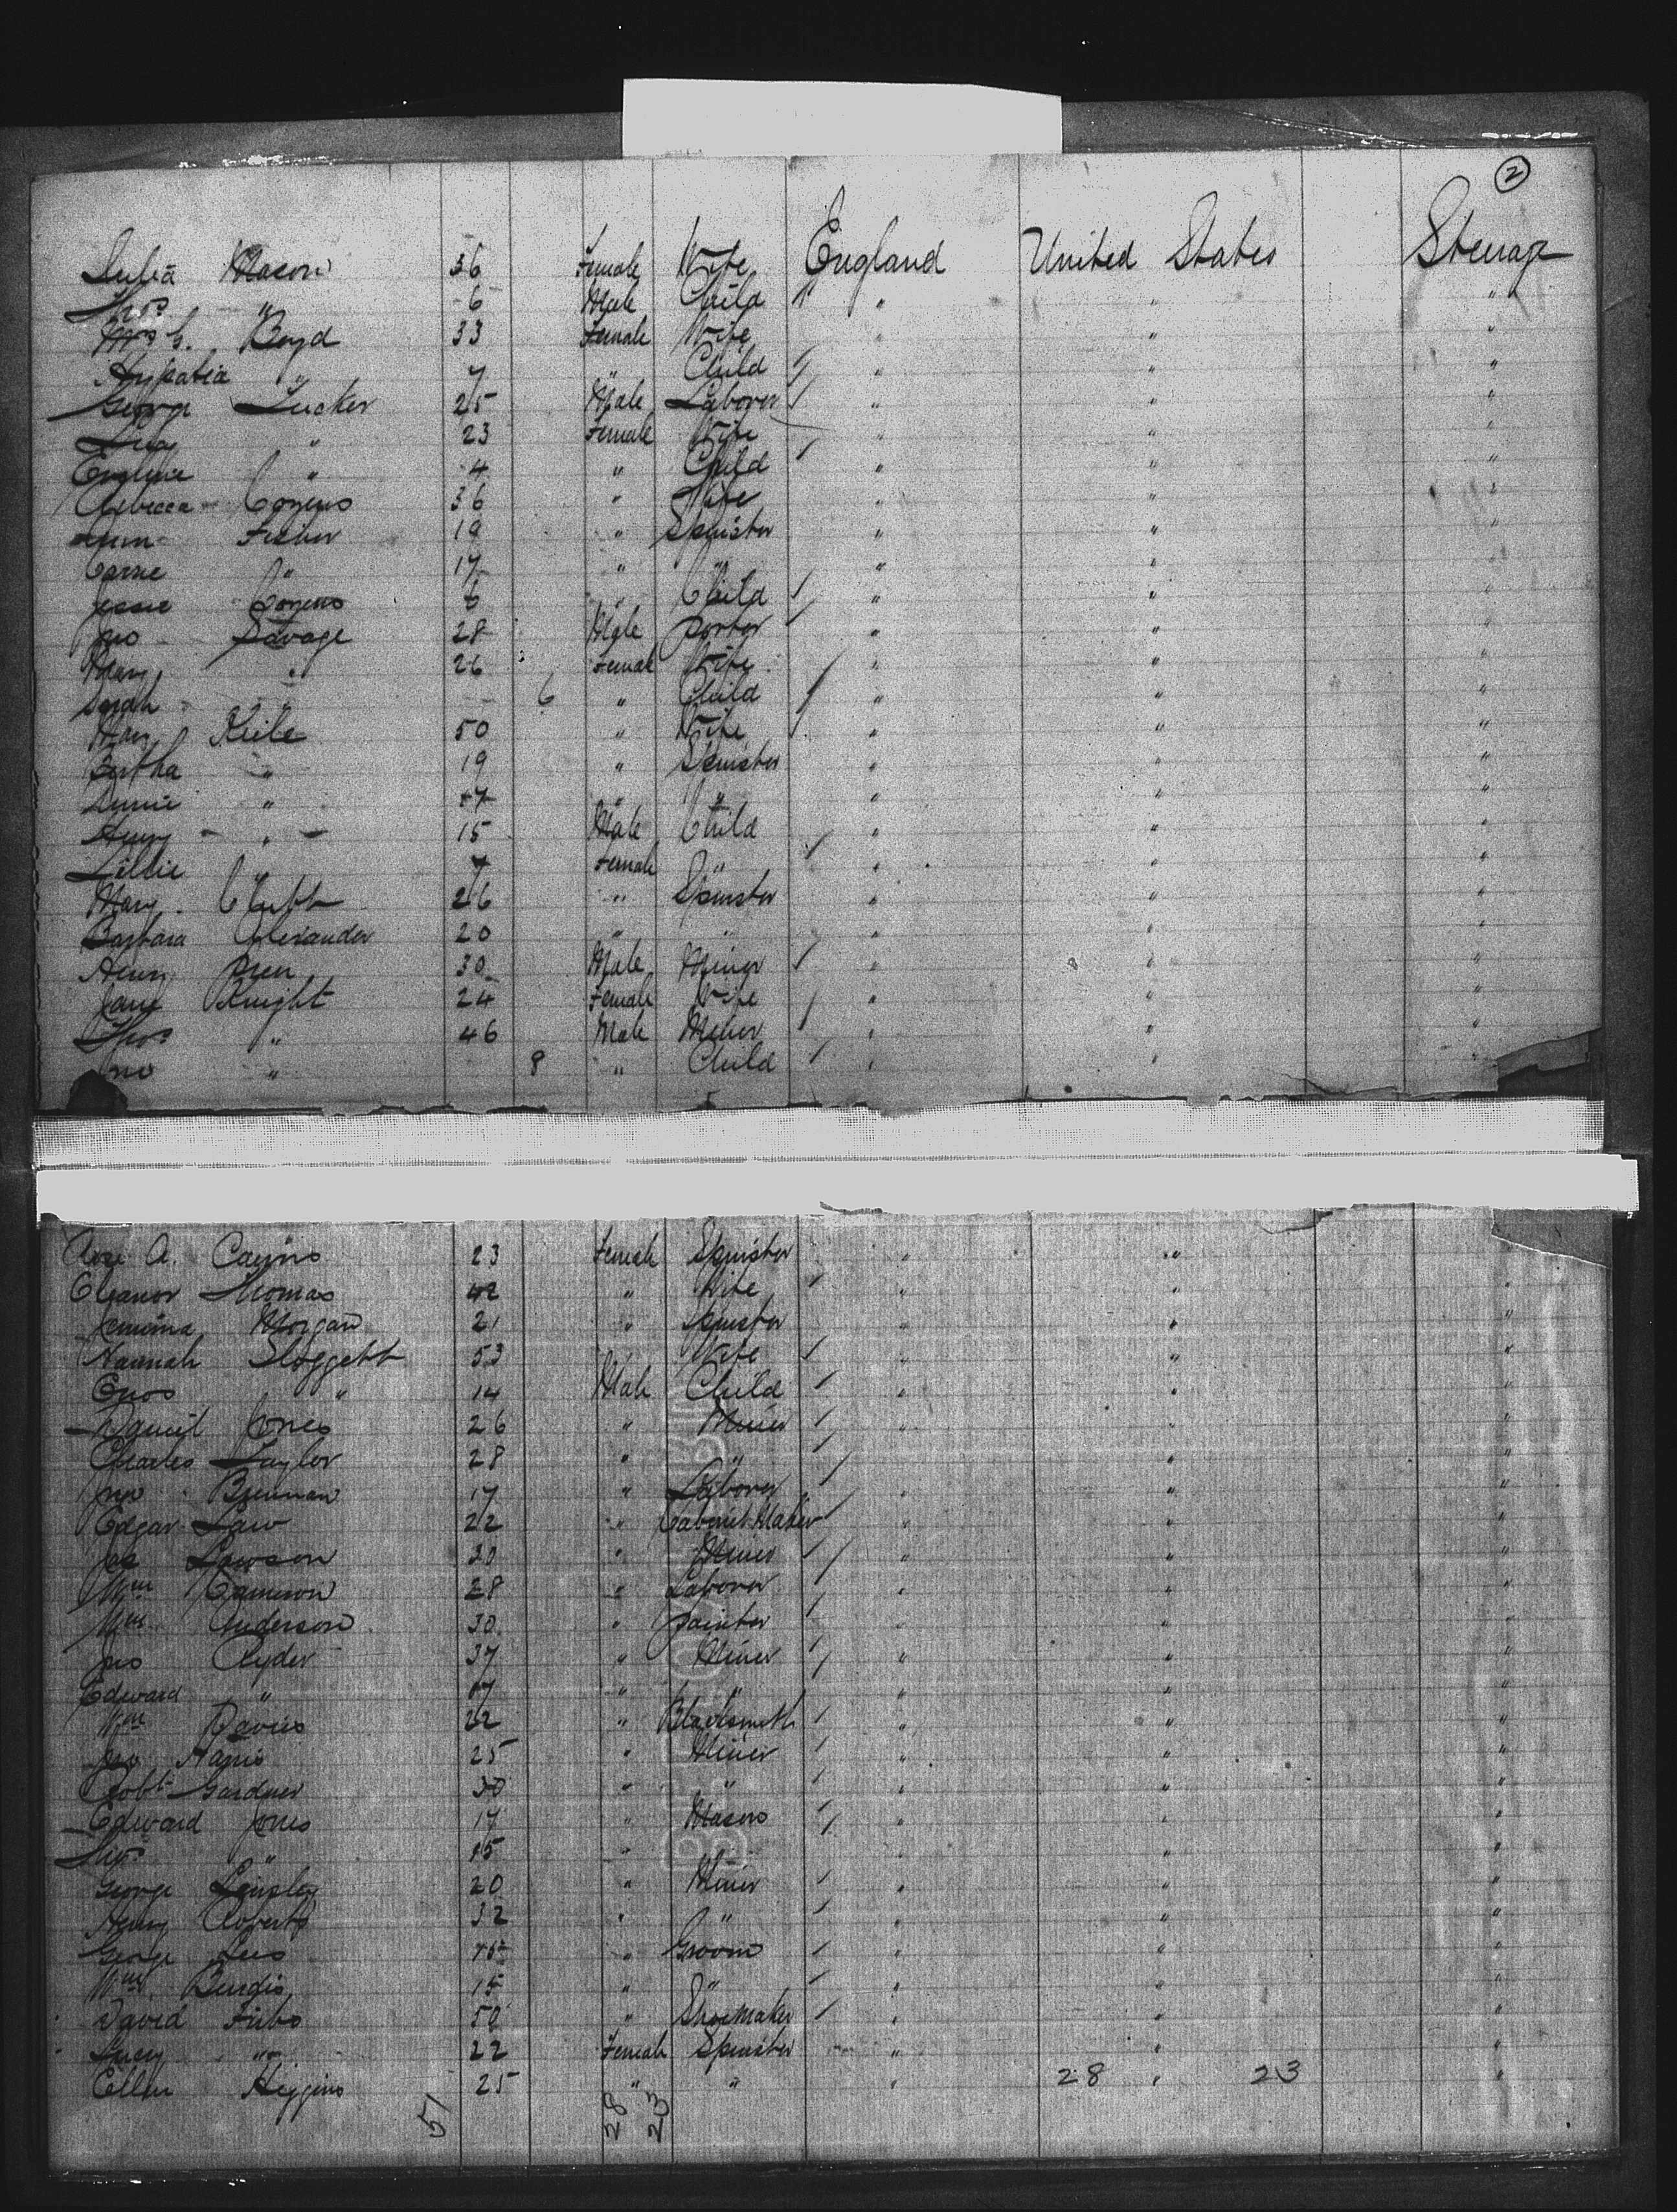 2
Julia Mason 36 Female Wife England United States Steerage
Thos " 6 Male Child " " " "
Mrs G. Boyd 33 Female Wife " " "
Hypatia " 7 " Child " " "
George Tucker 25 Male Laborer " " "
Lucy " 23 Female Wife " " "
" 4 " Child " " "
Rebecca Cozens 36 " Wife " " "
Fisher 19 " Spinster " " "
Carrie " 17 " " " " "
Jessie Cozens 6 " Child " " "
Jno Savage 28 Male Porter " " "
Mary " 26 Female Wife " " "
Sarah " 6 " Child " " "
Mary Keile 50 " Wife " " "
Bertha " 19 " Spinster " " "
Annie " 17 " " " " "
Henry " 15 Male Child " " "
Lillie " 7 Female " " " "
Mary Clubb 26 " Spinster " " "
Barbara Alexander 20 " " " " "
Henry Pren 30 Male Miner " " "
Jane Knight 24 Female Wife " " "
Thos " 46 Male Miner " " "
Jno " 8 " Child " " "
Rose A. 23 Female Spinster " "
Eleanor Thomas 42 " Wife " " "
Jemima Morgan 21 " Spinster " " "
Hannah Sloggett 53 " Wife " " "
Enos " 14 Male Child " " "
Daniel Jones 26 " Miner " " "
Charles Taylor 28 " " " " "
Jno Brennan 17 " Laborer " " "
Edgar Law 22 " Cabinet Maker " " "
Jas Lawson 30 " Miner " " "
Wm Cameron 28 " Laborer " " "
Wm Anderson 30 " Painter " " "
Jno Ryder 37 " Miner " " "
Edward " 17 " " " " "
Wm Davies 22 " Blacksmith " " "
Jno 25 " Miner " " "
Robt Gardner 30 " " " " "
Edward Jones 17 " Mason " " "
Thos " 15 " " " "
George Lensley 20 " Miner " " "
Henry Roberts 32 " " " " "
George Lees " Groom " " "
Wm Burgis 15 " " " " "
David 50 " Shoemaker " " "
Lucy " 22 Female Spinster " " "
Ellen Higgins 25 " " " 28 " 23 "
51 28 23